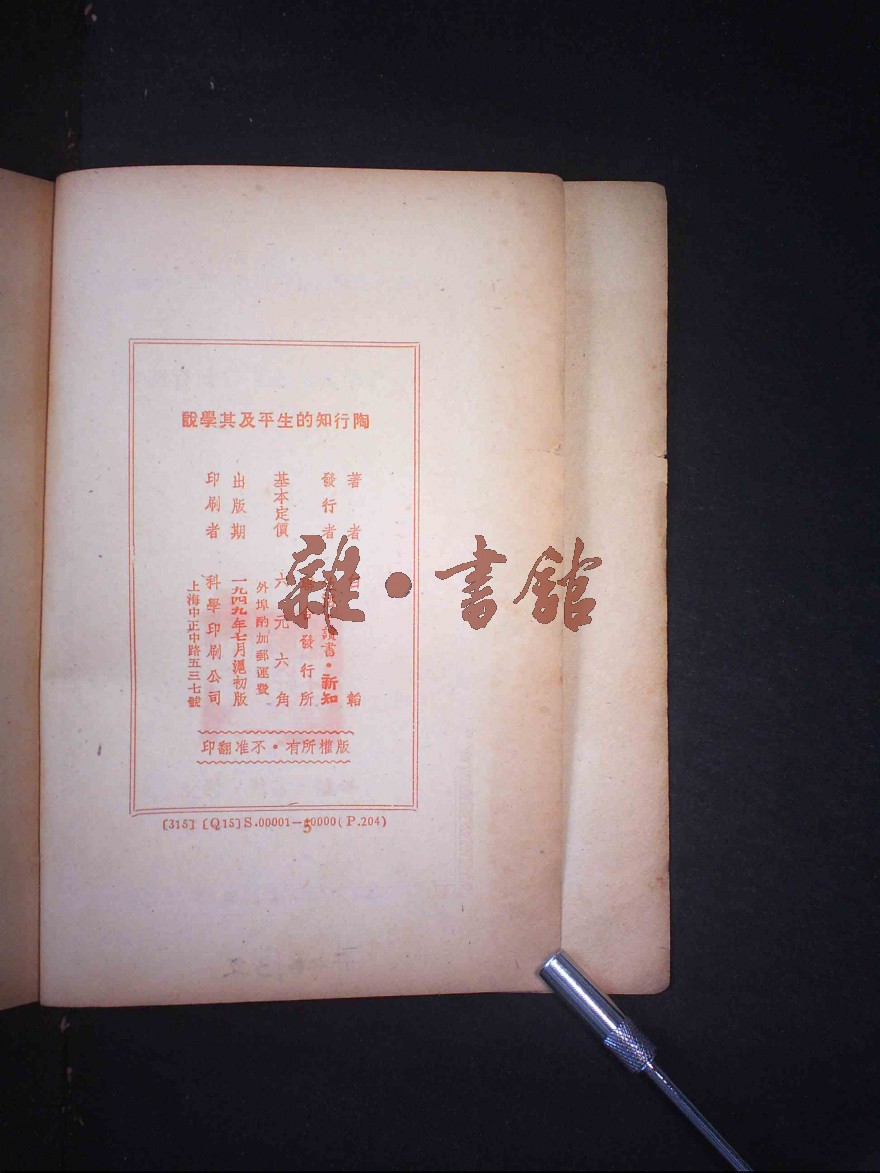 陶行知的生平及其學說
著者 韜
發行者 讀書·新知
發行所
基本定價 六元六角
外埠酌加郵運費
出版期 一九四九年七月滬初版
印刷者 科學印刷公司
上海中正中路五三七號
版權所有·不准翻印
[315] [Q15] S.00001—50000(P.204)
雜·書館